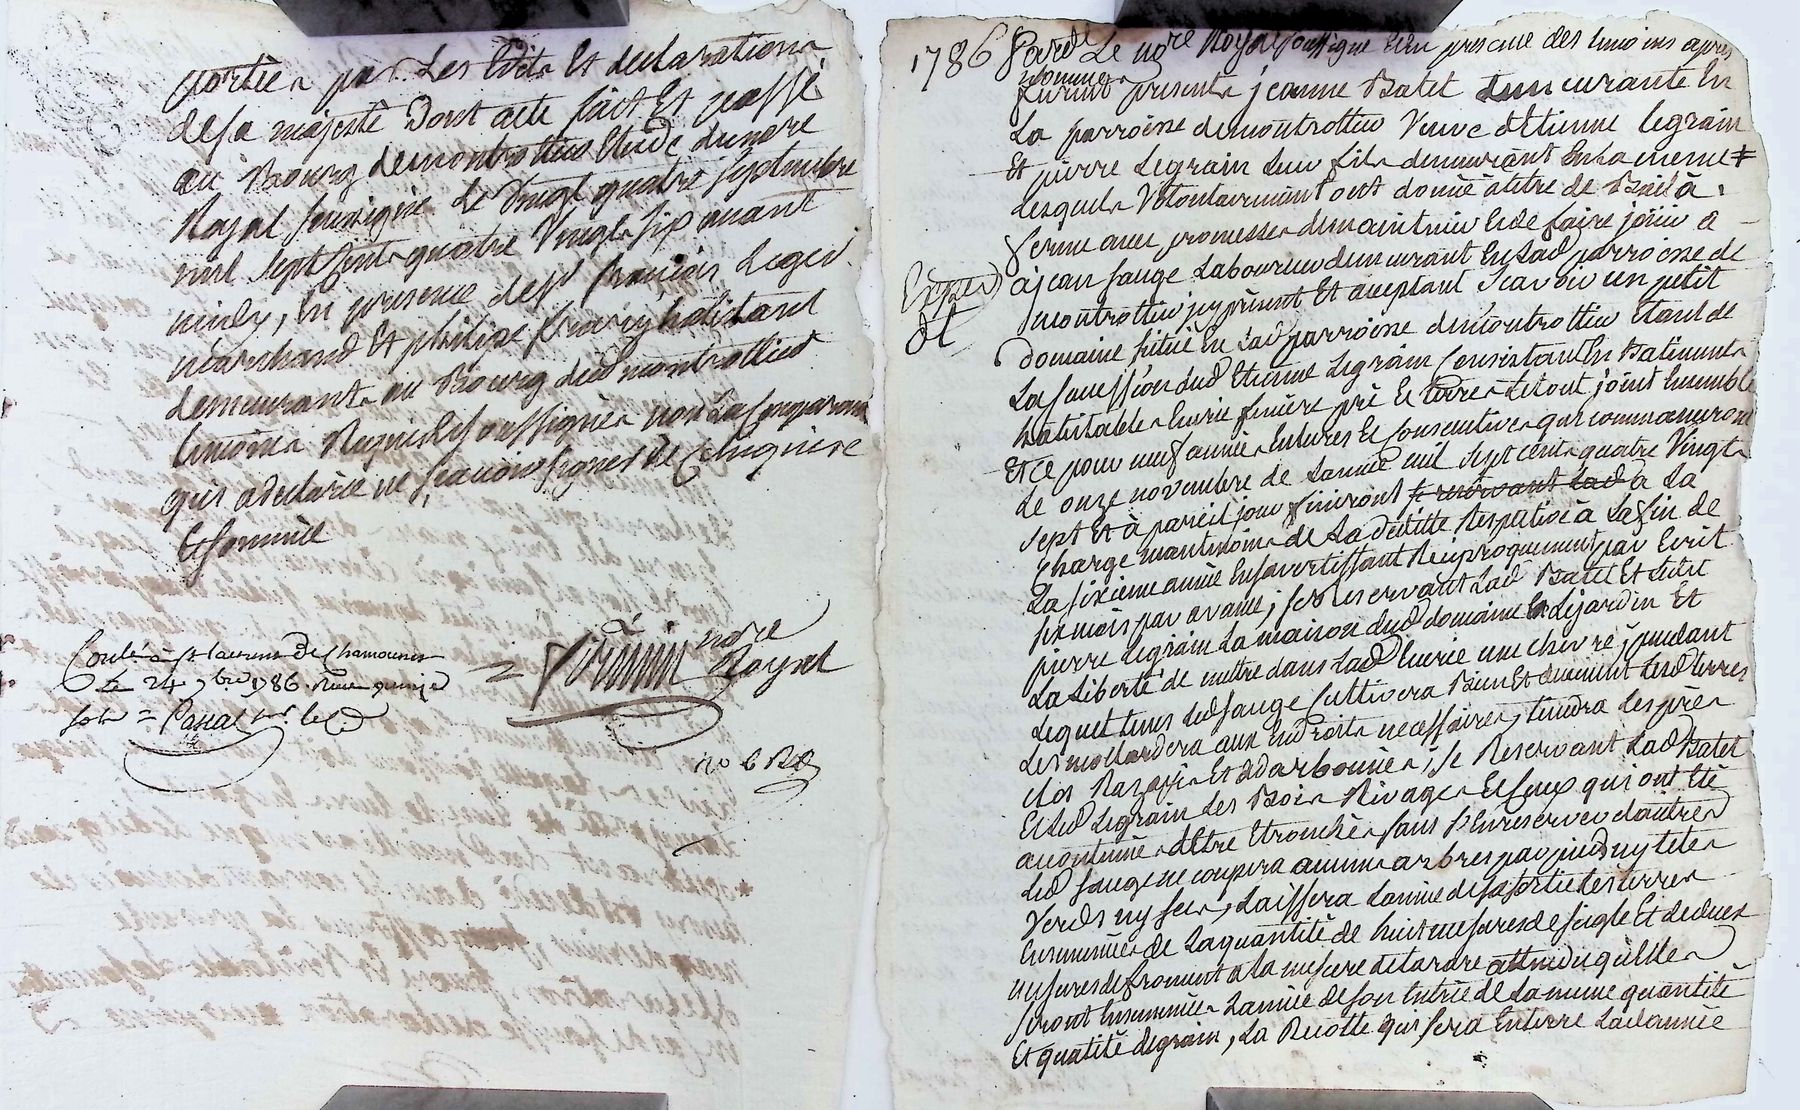 portées par Les Edits Et declarations
de sa majesté Dont acte fait Et passé
au Bourg de montrottier Etude du nore
Royal soussigné Le Vingt quatre septembre
mil sept cents quatre Vingts six avant
midy, En presence de sr françois Leger
marchand Et philipe habitant
demeurants au Bourg dud montrottier
temoins Requis Et soussignés non La comparante
qui a declarée ne sçavoir signer de Ce Enquise
Et sommée
Conlé à st laurens De Chamousset
Le 24 7bre 1786. Reçu
sols = Pascal
= nore
Royal
1786 Pard Le nore Royal soussigné Et En presence des temoins apres
nommes
furent presents jeanne Batet demeurante En
La parroisse de montrottier Veuve d'Etienne legrain
Et pierre Legrain Leur fils demeurant En La meme
Lesquels Volontairement ont donné à titre de Bail à
ferme avec promesse de maintenir Et de faire jouir a
a jean fauge Laboureur demeurant En Lad parroisse de
montrottier jcy present Et aceptant Scavoir un petit
Expied
dt
domaine situé En Lad parroisse de montrottier Etant de
La succession dud Etienne Legrain Consistant En Batiments
habitables Ecurie feniere pré Et terres Le tout joint Ensemble
Et Ce pour neuf années Entieres Et Consecutives qui commanceront
Le onze novembre de Lannée mil sept cents quatre Vingts
sept Et à pareil jour finiront se reservant Lad a La
Charge neantmoins de La déditte Respective à La fin de
La sixieme année En savertissant Reciproquement par Ecrit
six mois par avance ; se Reservant Lad Batet Et Ledit
pierre Legrain La maison dud domaine Le jardin Et
La Liberté de mettre dans Lad Ecurie une chevre ; pendant
Lequel tems Led fauge Cultivera Bien Et duement Lesd terres
Les mollardera aux Endroits necessaires, tiendra Les prés
clos Razoyés Et Ddarbounés ; se Reservant Lad Batet
Et Led Legrain Les Bois Rivages Et ceux qui ont Eté
acoutumés dEtre Etronchés sans s'En reserver dautres
Led fauge ne coupera aucuns arbres par pied ny tete
Verds ny secs, Laissera Lannée de sa sortie Les terres
Ensemencées de La quantité de huit mesures de seigle Et de deux
mesures de froment a la mesure de tarare attendu qu'elles
seront Ensemencées Lannée de son Entrée de La meme quantité
Et qualité de grain, La Recolte qui sera En terre Lad année